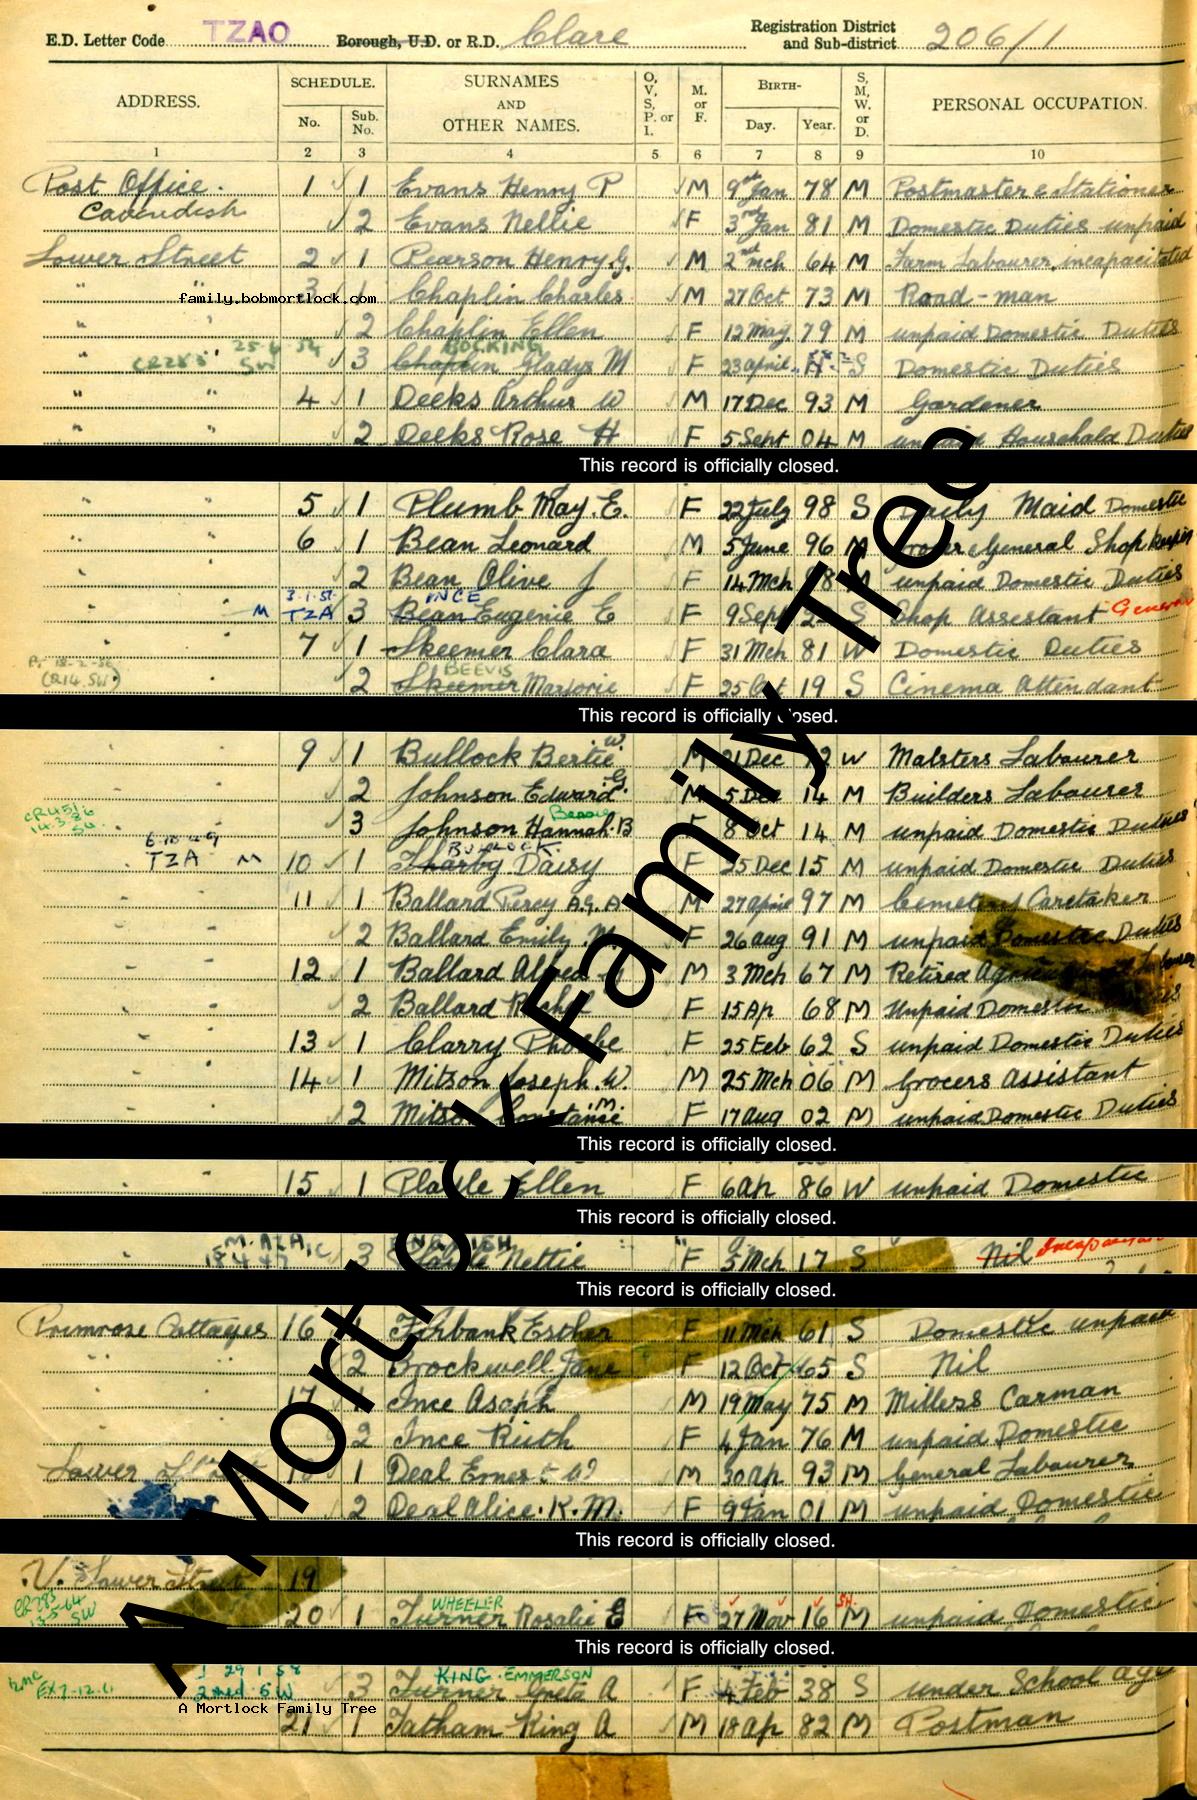 E.D. Letter Code TZAO Borough, U.D. or R.D. Clare Registration District and Sub-district 206/1
ADDRESS. SCHEDULE. No. Sub. No. SURNAMES AND OTHER NAMES. O, V, S, P. or I. M. or F. BIRTH- Day. Year. S, M, W. or D. PERSONAL OCCUPATION.
1 2 3 4 5 6 7 8 9 10
Post Office. 1 1 Evans Henry P M 9th Jan 78 M Postmaster & Stationer
Cavendish 2 Evans Nellie F 3rd Jan 81 M Domestic Duties unpaid
Lower Street 2 1 Pearson Henry G. M 2nd Mch 64 M Farm Labourer, incapacitated
" " 3 Chaplin Charles M 27 Oct 73 M Road-man
family.bobmortlock.com
" " 2 Chaplin Ellen F 12 May 79 M unpaid Domestic Duties
BOCKING
" " CR283 25.6.54 SW 3 Chaplin Gladys M F 23 April S Domestic Duties
" " 4 1 Deeks Arthur W M 17 Dec 93 M Gardener
" " 2 Deeks Rose H F 5 Sept 04 M unpaid Household Duties
This record is officially closed.
" " 5 1 Plumb May. E. F 22 July 98 S Daily Maid Domestic
" " 6 1 Bean Leonard M 5 June 96 M Grocer & General Shop keeper
2 Bean Olive J F 14 Mch 98 M unpaid Domestic Duties
INCE
M 3.1.51 TZA 3 Bean Eugenie E F 9 Sept S Shop Assistant General
7 1 Skeemer Clara F 31 Mch 81 W Domestic Duties
BEEVIS
(R14.SW) 2 Skeemer Marjorie F 25 Oct 19 S Cinema Attendant
This record is officially closed.
9 1 Bullock Bertie W M 21 Dec W Malsters Labourer
2 Johnson Edward G M 5 Dec 14 M Builders Labourer
Bessie
3 Johnson Hannah. B F 8 Oct 14 M unpaid Domestic Duties
BULLOCK.
6.10.49 TZA M 10 1 Tharby Daisy F 25 Dec 15 M unpaid Domestic Duties
11 1 Ballard Percy A.G.A M 27 April 97 M Cemetery Caretaker
2 Ballard Emily M F 26 Aug 91 M unpaid Domestic Duties
12 1 Ballard Alfred M 3 Mch 67 M Retired
2 Ballard Rachel F 15 Ap 68 M Unpaid Domestic
13 1 Clarry Phoebe F 25 Feb 62 S unpaid Domestic Duties
14 1 Mitson Joseph. W. M 25 Mch 06 M Grocers Assistant
2 Mitson Constance M F 17 Aug 02 M unpaid Domestic Duties
This record is officially closed.
15 1 Ellen F 6 Ap 86 W unpaid Domestic
This record is officially closed.
ENGLISH
3 Nettie F 5 Mch 17 S Nil
This record is officially closed.
Primrose Cottages 16 1 Firbank Esther F 11 Mch 61 S Domestic unpaid
2 Brockwell Jane F 12 Oct 65 S Nil
17 Ince Asaph M 19 May 75 M Millers Carman
2 Ince Ruth F 4 Jan 76 M unpaid Domestic
Lower Street 1 Deal Ernest W M 30 Ap 93 M General Labourer
2 Deal Alice. K. M. F 9 Jan 01 M unpaid Domestic
This record is officially closed.
V. Lower Street 19
WHEELER
20 1 Turner Rosalie E F 27 Nov 16 M unpaid Domestic
This record is officially closed.
KING EMMERSON
3 Turner Greta A F 4 Feb 38 S under School age
A Mortlock Family Tree
21 1 Tatham King A M 18 Ap 82 M Postman
A Mortlock Family Tree